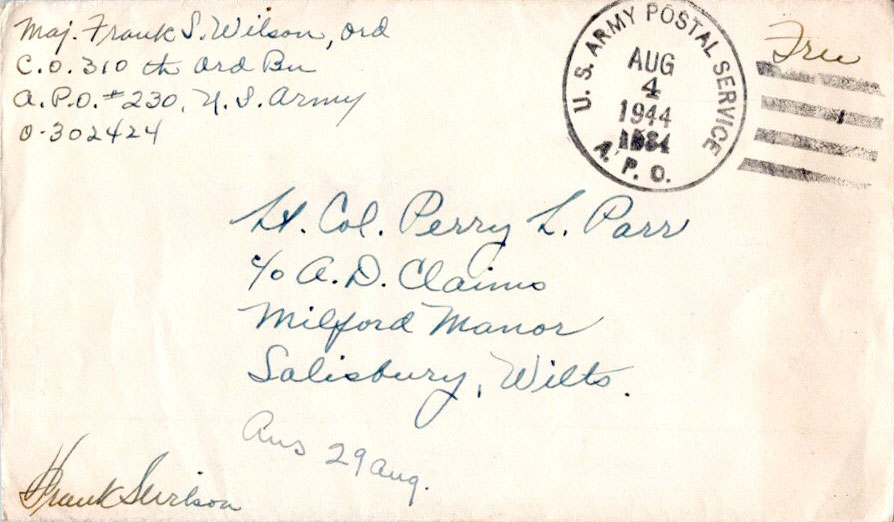 Maj. Frank S. Wilson, Ord
C.O. 310 th Ord Bn
A.P.O. #230, U.S. Army
O-302424
U. S. ARMY POSTAL SERVICE
AUG
4
1944
A. P. O.
Free
Lt. Col. Perry L. Parr
c/o A.D. Claims
Milford Manor
Salisbury, Wilts.
Ans 29 Aug.
Frank S Wilson